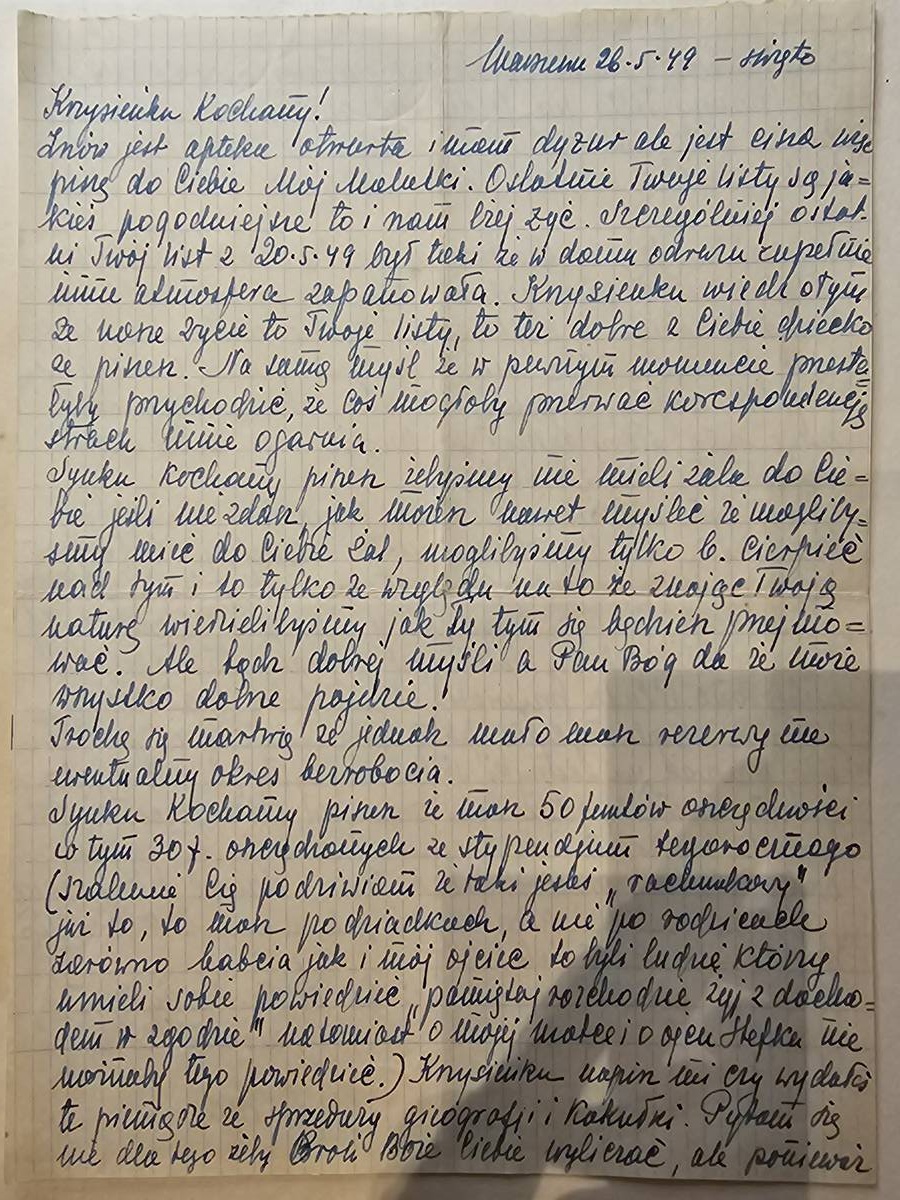 26.5.49 – święto
Krzysieńku Kochany!
Znów jest apteka otwarta i mam dyżur ale jest cisza więc
piszę do Ciebie Mój Malutki. Ostatnie Twoje listy są ja=
kieś pogodniejsze to i nam lżej żyć. Szczególniej ostat-
ni Twój list z 20.5.49 był taki że w domu odrazu zupełnie
inna atmosfera zapanowała. Krzysieńku wiedz o tym
że nasze życie to Twoje listy, to też dobre z Ciebie dziecko
że piszesz. Na samą myśl że w pewnym momencie przesta-
łyby przychodzić, że coś mogłoby przerwać korespondencję
strach mnie ogarnia.
Synku kochany piszesz żebyśmy nie mieli żalu do Cie=
bie jeśli nie zdasz, jak możesz nawet myśleć że mogliby=
śmy mieć do Ciebie żal, moglibyśmy tylko b. cierpieć
nad tym i to tylko ze względu na to że znając Twoją
naturę wiedzielibyśmy jak Ty tym się będziesz przejmo=
wać. Ale bądź dobrej myśli a Pan Bóg da że może
wszystko dobrze pójdzie.
Trochę się martwię że jednak mało masz rezerwy na
ewentualny okres bezrobocia.
Synku Kochany piszesz że masz 50 funtów oszczędności
w tym 30 f. oszczędzonych ze stypendjum tegorocznego
(Szalenie Cię podziwiam że taki jesteś „rachunkowy"
już to, to masz po dziadkach, a nie po rodzicach
zarówno babcia jak i mój ojciec to byli ludzie którzy
umieli sobie powiedzieć „pamiętaj rozchodzie żyj z docho=
dem w zgodzie" natomiast o mojej matce i o ojcu Stefka nie
można by tego powiedzieć.) Krzysieńku napisz mi czy wydałeś
te pieniądze ze sprzedaży gieografji i Kakułki. Pytam się
nie dla tego żeby Broń Boże Ciebie wyliczać, ale ponieważ